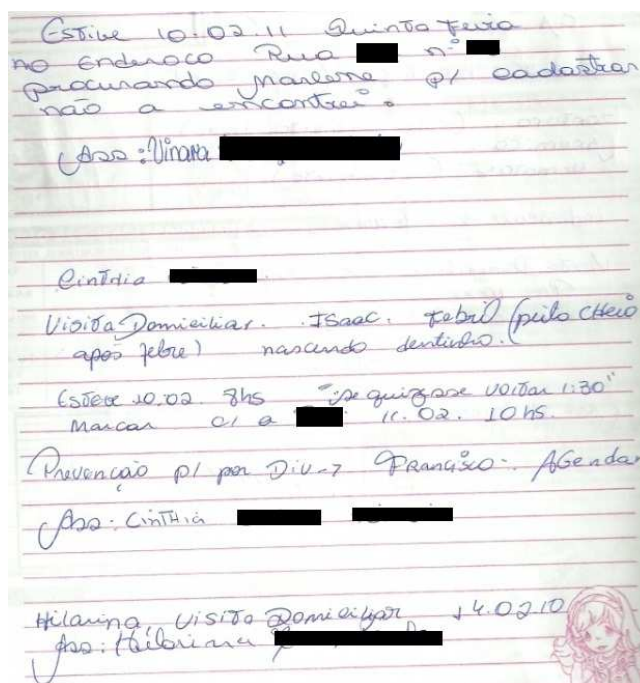 Estive 10.02.11 Quinta Feira
no Endereco Rua nº
procurando Marlene p/ cadastrar
não a encontrei.
Ass: Vinara
Cinthia
Visita Domiciliar. Isaac. Febril (peito cheio
após febre) nascendo dentinho.
Esteve 10.02. 8hs "se quizesse voltar 1:30"
Marcar c/ a 11.02. 10hs.
Prevenção p/ por DIU → Francisco: Agendar
Ass: Cinthia
Hilarina Visita Domiciliar 14.02.10
Ass: Hilarina